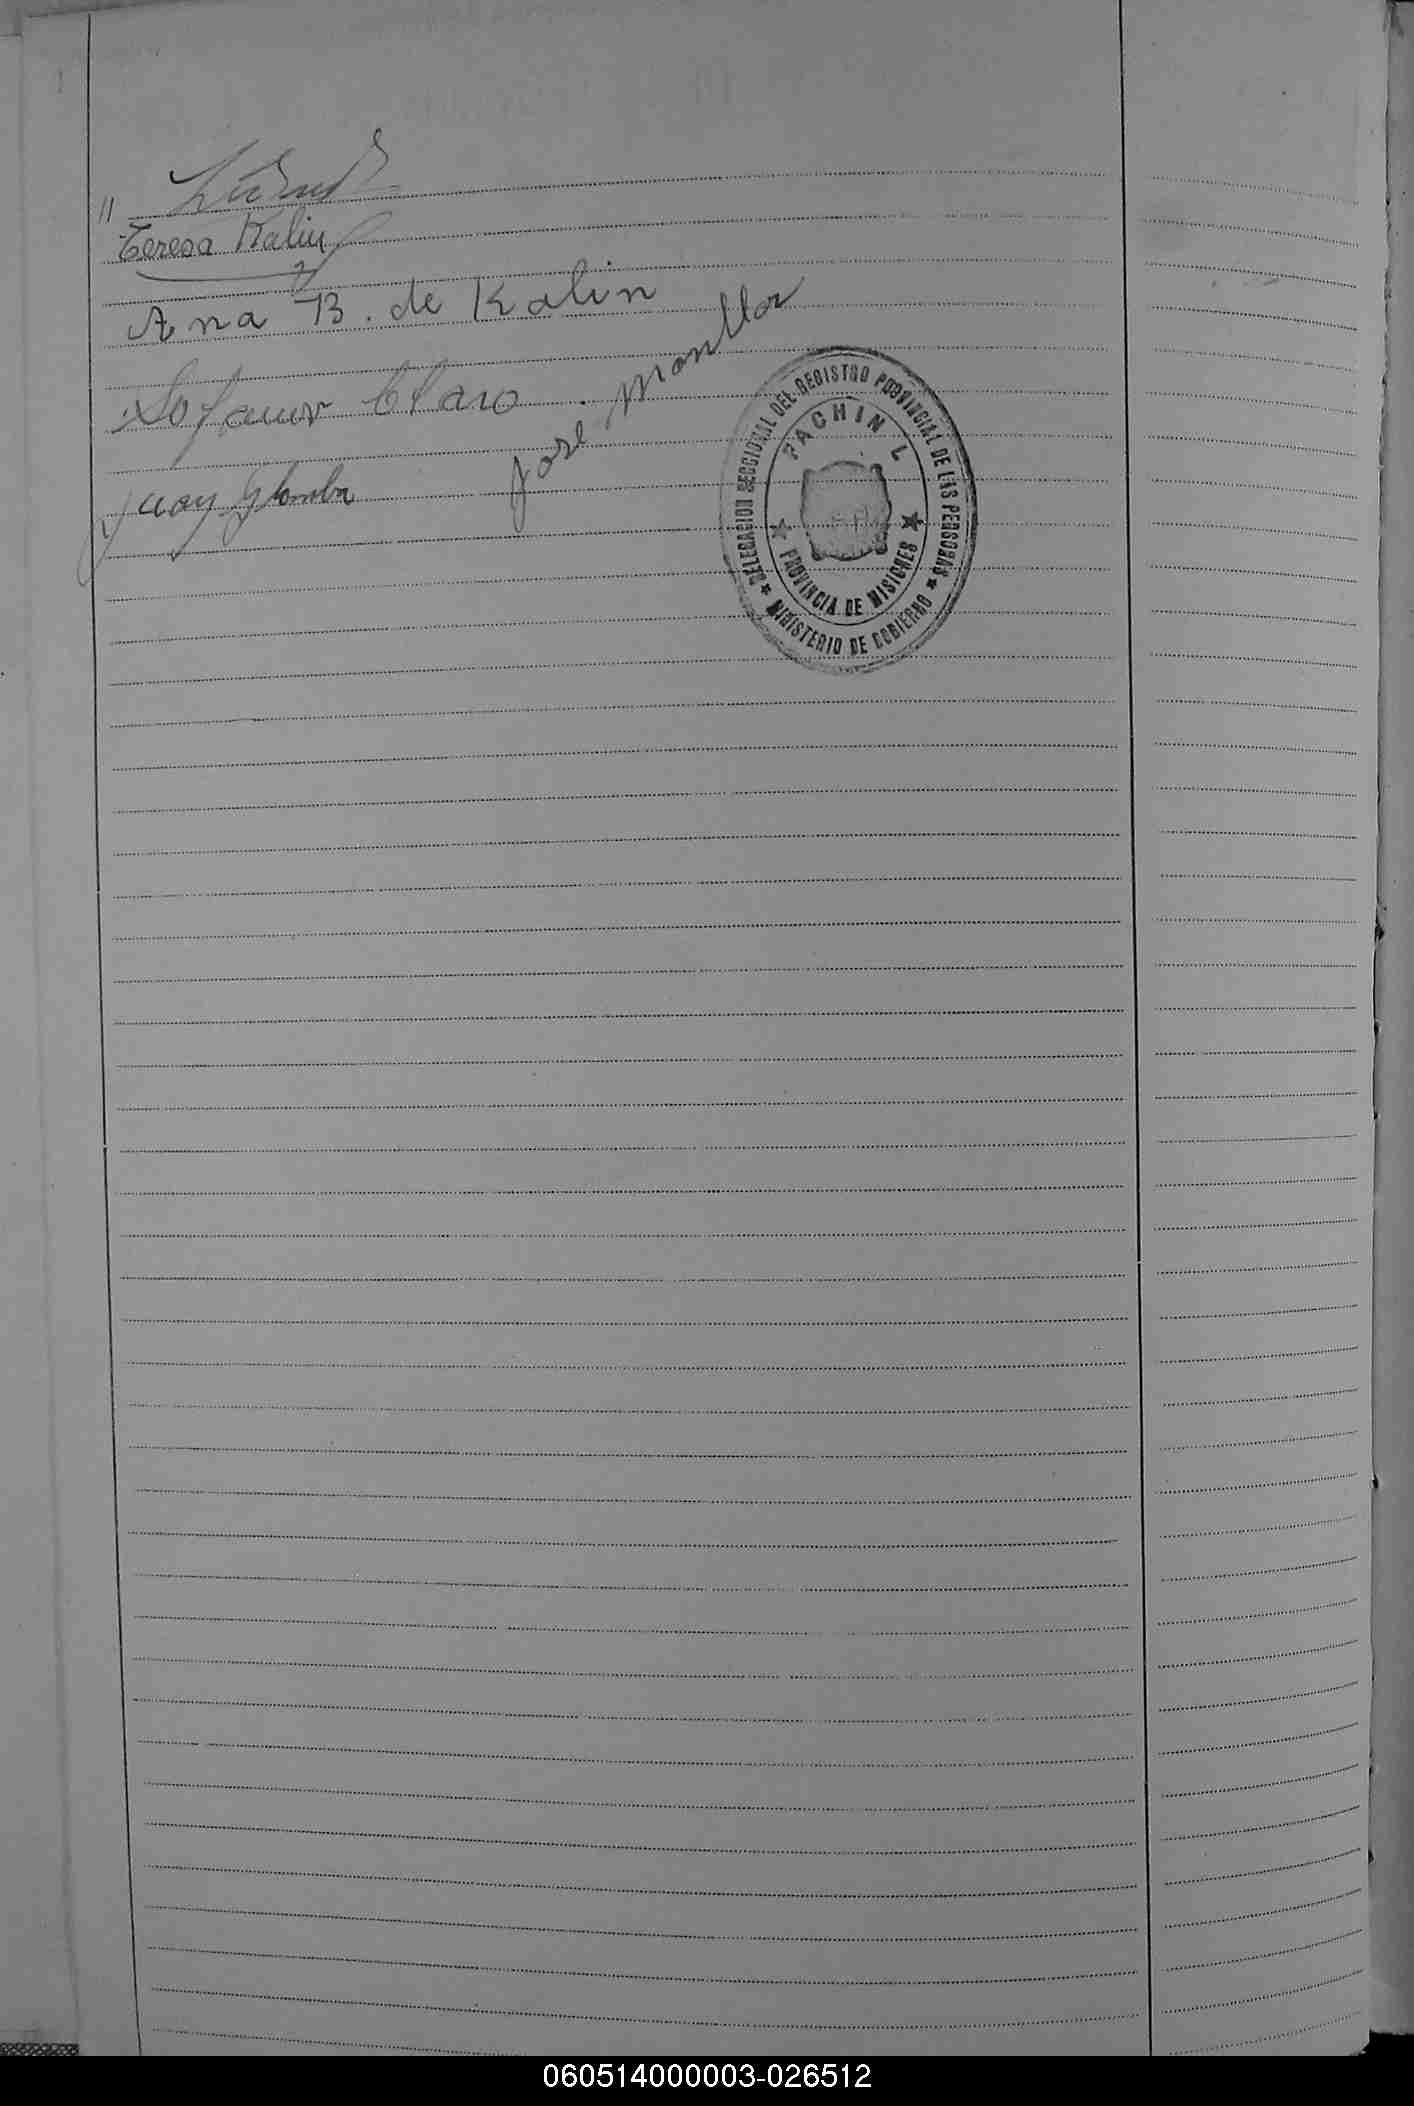 Teresa Kalin
Ana B. de Kalin
Claro
José Monllor
Juan Glomba
DELEGACION SECCIONAL DEL REGISTRO PROVINCIAL DE LAS PERSONAS
FACHINAL
PROVINCIA DE MISIONES
MINISTERIO DE GOBIERNO
060514000003-026512